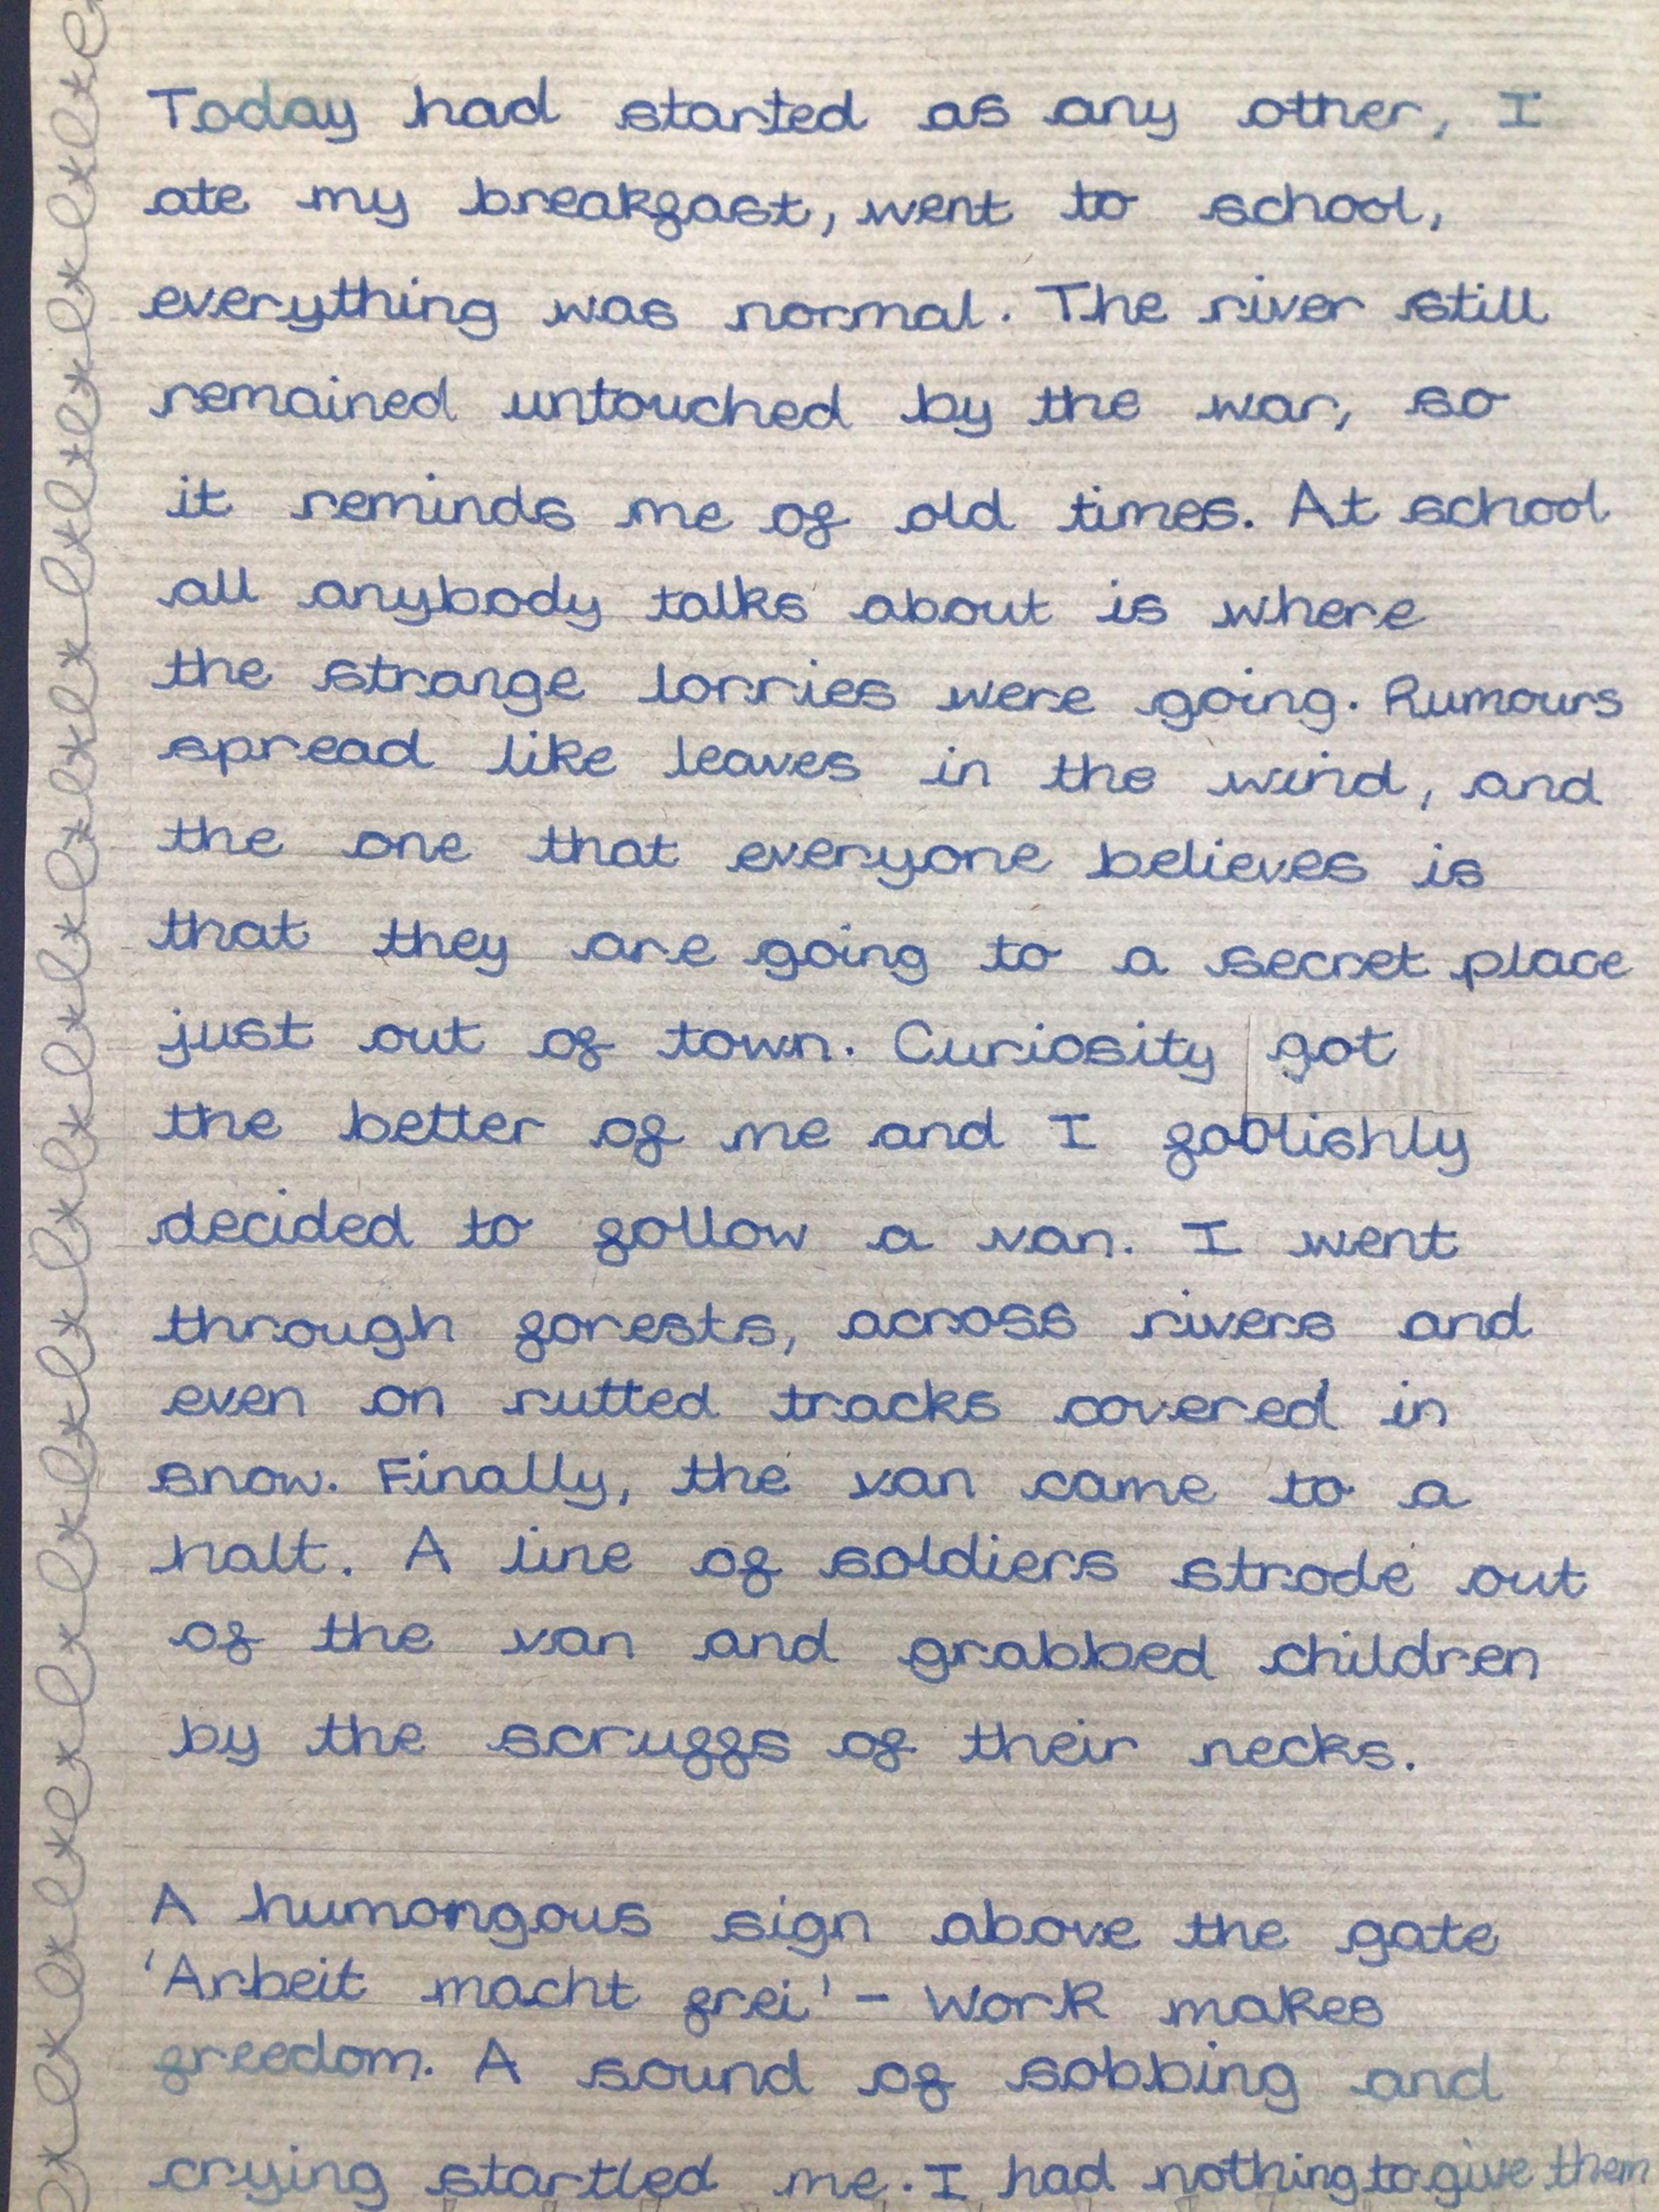 Today had started as any other, I
ate my breakfast, went to school,
everything was normal. The river still
remained untouched by the war, so
it reminds me of old times. At school
all anybody talks about is where
the strange lorries were going. Rumours
spread like leaves in the wind, and
the one that everyone believes is
that they are going to a secret place
just out of town. Curiosity got
the better of me and I foolishly
decided to follow a van. I went
through forests, across rivers and
even on rutted tracks covered in
snow. Finally, the van came to a
halt. A line of soldiers strode out
of the van and grabbed children
by the scruffs of their necks.
A humongous sign above the gate
'Arbeit macht frei' - Work makes
freedom. A sound of sobbing and
crying startled me. I had nothing to give them